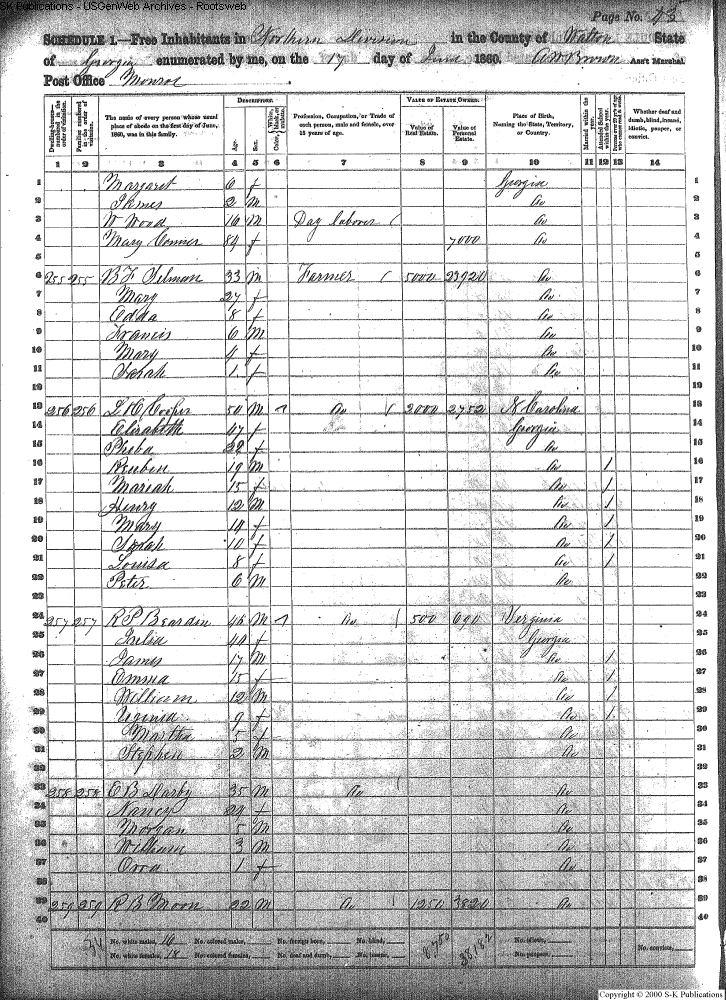 S-K Publications - USGenWeb Archives - Rootsweb
Page No. 73
SCHEDULE 1.—Free Inhabitants in Northern Division in the County of Walton State
of Georgia enumerated by me, on the 17 day of June 1860. Ass't Marshal.
Post Office Monroe
DESCRIPTION. VALUE OF ESTATE OWNED.
Dwelling-houses—numbered in the order of visitation. Families numbered in the order of visitation. The name of every person whose usual place of abode on the first day of June, 1860, was in this family. Age. Sex. Color, White, black, or mulatto. Profession, Occupation, or Trade of each person, male and female, over 15 years of age. Value of Real Estate. Value of Personal Estate. Place of Birth, Naming the State, Territory, or Country. Married within the year. Attended School within the year. Whether deaf and dumb, blind, insane, idiotic, pauper, or convict.
1 2 3 4 5 6 7 8 9 10 11 12 13 14
1 Margaret 6 f Georgia 1
2 James 2 M Do 2
3 W Wood 16 M Day laborer Do 3
4 Mary Conner 84 f 7000 Do 4
5 5
6 255 255 B F Selman 33 M Farmer 5000 23920 Do 6
7 Mary 27 f Do 7
8 Edda 8 f Do 8
9 Francis 6 M Do 9
10 Mary 4 f Do 10
11 Sarah 1 f Do 11
12 12
13 256 256 Cooper 50 M Do 2000 2752 N Carolina 13
14 Elizabeth 47 f Georgia 14
15 Pheba f Do 15
16 Reuben 19 M Do / 16
17 Mariah 15 f Do / 17
18 Henry 12 M Do / 18
19 Mary 14 f Do / 19
20 Sarah 10 f Do / 20
21 Louisa 8 f Do / 21
22 Peter 6 M Do 22
23 23
24 257 257 R P Bearden 46 M Do 500 690 Virginia 24
25 Julia 40 f Georgia 25
26 James 17 M Do / 26
27 Emma 15 f Do / 27
28 William 12 M Do / 28
29 9 f Do / 29
30 Martha 5 f Do 30
31 Stephen 2 M Do 31
32 32
33 258 258 E B Darby 35 M Do Do 33
34 Nancy 24 f Do 34
35 Morgan 5 M Do 35
36 William 3 M Do 36
37 Orra 1 f Do 37
38 38
39 259 259 R B Moon 22 M Do 1250 3820 Do 39
40 40
No. white males, 16 No. colored males, No. foreign born, No. blind, 8750 38,182 No. idiotic,
No. white females, 18 No. colored females, No. deaf and dumb, No. insane, No. paupers, No. convicts,
Copyright © 2000 S-K Publications